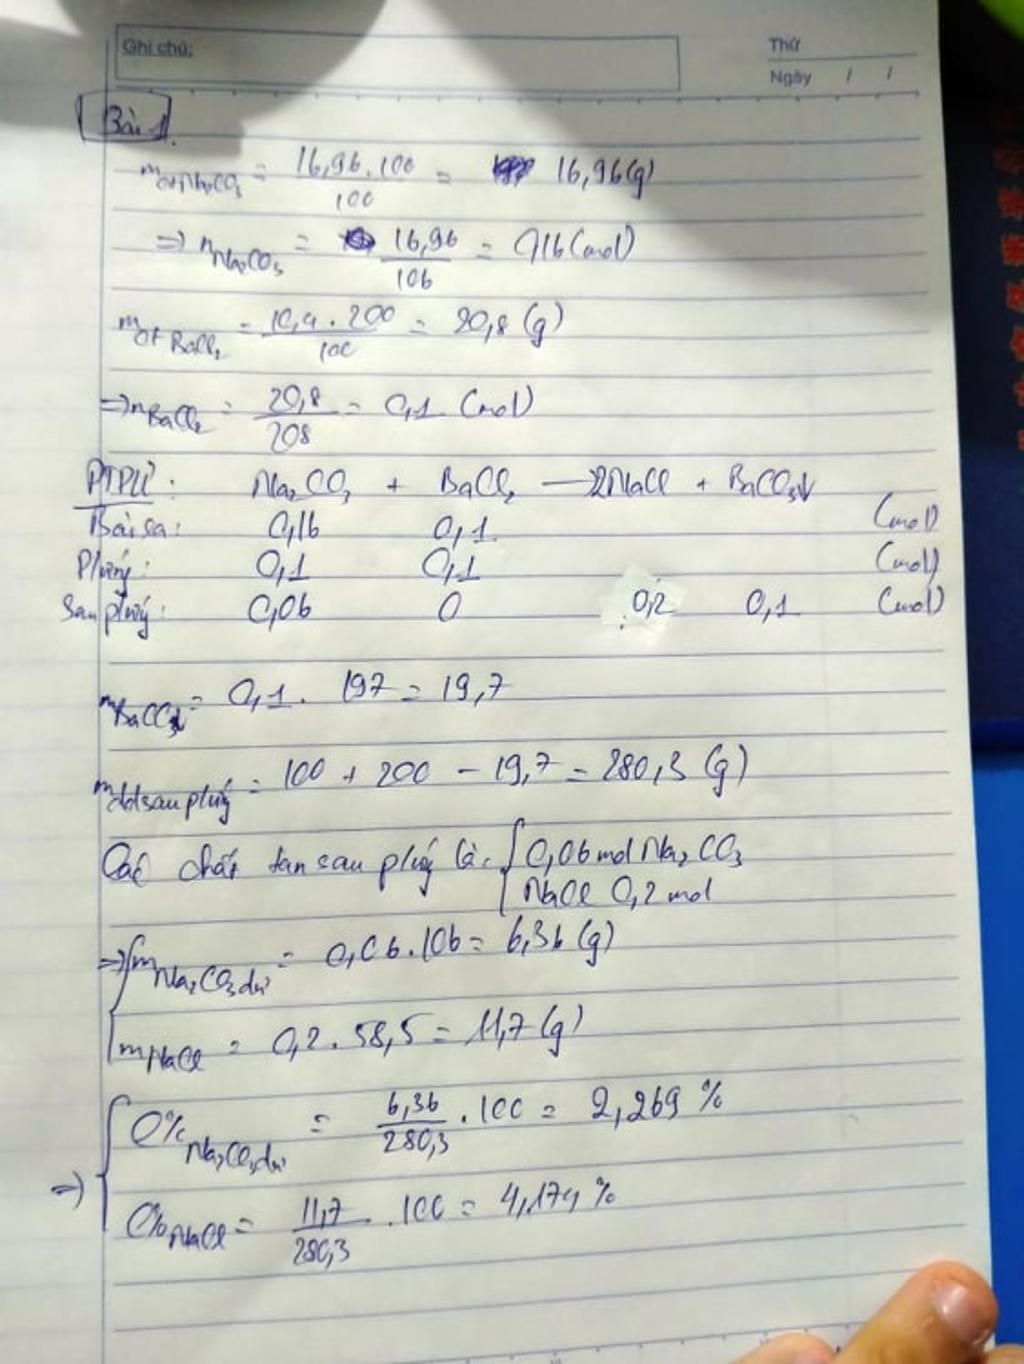 Ghi chú:
Thứ
Ngày / /
Bài 1
mctNa₂CO₃ = 16,96.100/100 = 16,96(g)
=> nNa₂CO₃ = 16,96/106 = 0,16(mol)
mct BaCl₂ = 10,4.200/100 = 20,8 (g)
=> nBaCl₂ = 20,8/208 = 0,1 (mol)
PTPƯ: Na₂CO₃ + BaCl₂ → 2NaCl + BaCO₃↓
Bài ra: 0,16 0,1 (mol)
Phứng: 0,1 0,1 (mol)
Sau phứng: 0,06 0 0,2 0,1 (mol)
mBaCO₃↓ = 0,1. 197 = 19,7
mddsau phứng = 100 + 200 - 19,7 = 280,3 (g)
Các chất tan sau phứng là: { 0,06 mol Na₂CO₃
NaCl 0,2 mol
=> { mNa₂CO₃ dư = 0,06.106 = 6,36 (g)
mNaCl = 0,2.58,5 = 11,7 (g)
=> { C%Na₂CO₃ dư = 6,36/280,3 .100 = 2,269 %
C%NaCl = 11,7/280,3 .100 = 4,174 %